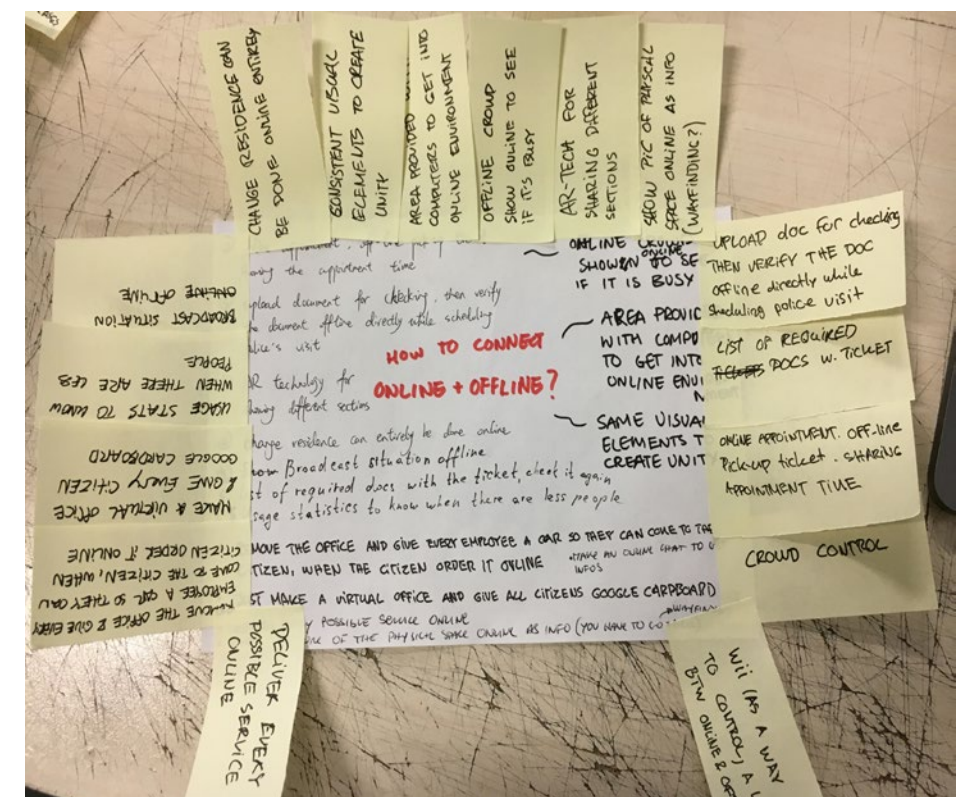 CHANGE RESIDENCE CAN
BE DONE ONLINE ENTIRELY
CONSISTENT VISUAL
ELEMENTS TO CREATE
UNITY
AREA PROVIDED
COMPUTERS TO GET INTO
ONLINE ENVIRONMENT
OFFLINE CROWD
SHOW ONLINE TO SEE
IF IT'S BUSY
AR-TECH FOR
SHARING DIFFERENT
SECTIONS
SHOW PIC OF PHYSICAL
SPACE ONLINE AS INFO
(WAYFINDING?)
UPLOAD doc for checking
THEN VERIFY THE DOC
offline directly while
scheduling police visit
LIST OF REQUIRED
TICKETS DOCS W. TICKET
ONLINE APPOINTMENT. OFF-line
Pick-up ticket. SHARING
APPOINTMENT TIME
CROWD CONTROL
Wii (AS A WAY
TO CONTROL) A
BTW ONLINE & OF
DELIVER EVERY
POSSIBLE SERVICE
ONLINE
REMOVE THE OFFICE & GIVE EVERY
EMPLOYEE A CAR SO THEY CAN
COME TO THE CITIZEN, WHEN,
CITIZEN ORDER IT ONLINE
MAKE A VIRTUAL OFFICE
& GIVE EVERY CITIZEN
GOOGLE CARDBOARD
USAGE STATS TO KNOW
WHEN THERE ARE LESS
PEOPLE
BROADCAST SITUATION
ONLINE OFFLINE
the appointment time
upload document for checking, then verify
document offline directly while scheduling
police's visit
HOW TO CONNECT
ONLINE + OFFLINE?
AR technology for
different sections
change residence can entirely be done online
Broadcast situation offline
of required docs with the ticket, check it again
usage statistics to know when there are less people
ONLINE
ONLINE
SHOWN TO SE
IF IT IS BUSY
AREA PROVID
WITH COMPU
TO GET INTO
ONLINE ENVI
SAME VISUA
ELEMENTS T
CREATE UNIT
MOVE THE OFFICE AND GIVE EVERY EMPLOYEE A CAR SO THEY CAN COME TO THE
CITIZEN, WHEN THE CITIZEN ORDER IT ONLINE
MAKE AN ONLINE CHAT TO G
INFOS
ST MAKE A VIRTUAL OFFICE AND GIVE ALL CITIZENS GOOGLE CARDBOARD
POSSIBLE SERVICE ONLINE
OF THE PHYSICAL SPACE ONLINE AS INFO (YOU HAVE TO GO